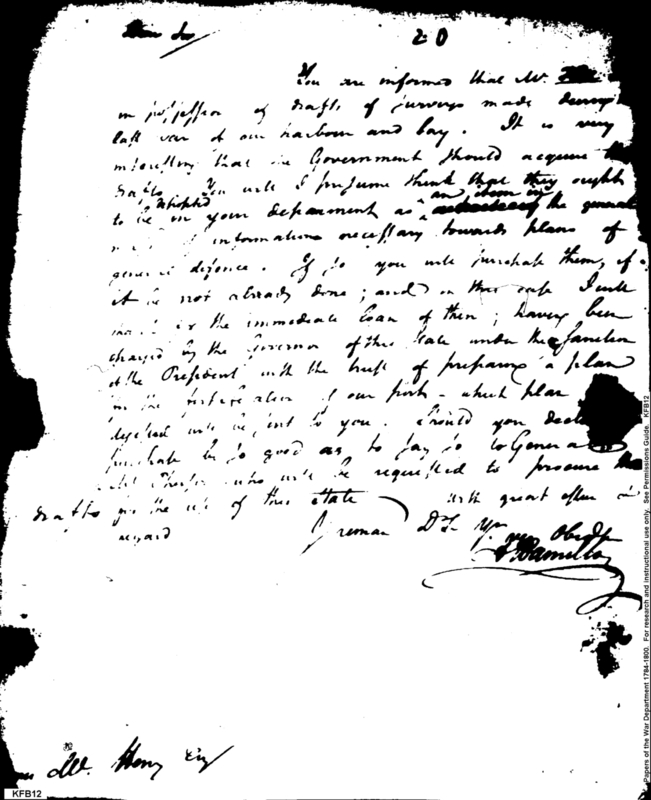 Dear Sir
20
You are informed that Mr.
in possession of drafts of surveys made during
last war of our harbour and bay. It is very
interesting that the Government should acquire
drafts. You will I presume think that they ought
to be deposited in your department as an item in the general
of information necessary towards plans of
general defence. If so you will purchase them, if
it be not already done; and in this case I will
the immediate loan of them; having been
charged by the Governor of this State under the sanction
of the President with the trust of preparing a plan
for the fortification of our port - which plan
will be sent to you. Should you decline
purchase be so good as to say so to General
who will be requested to procure the
drafts for the use of this State. With great esteem &
regard I remain D Sr Yr
Obed
A Hamilton
Mc. Henry Esq
KFB12
Papers of the War Department 1784-1800. For research and instructional use only. See Permissions Guide. KFB12